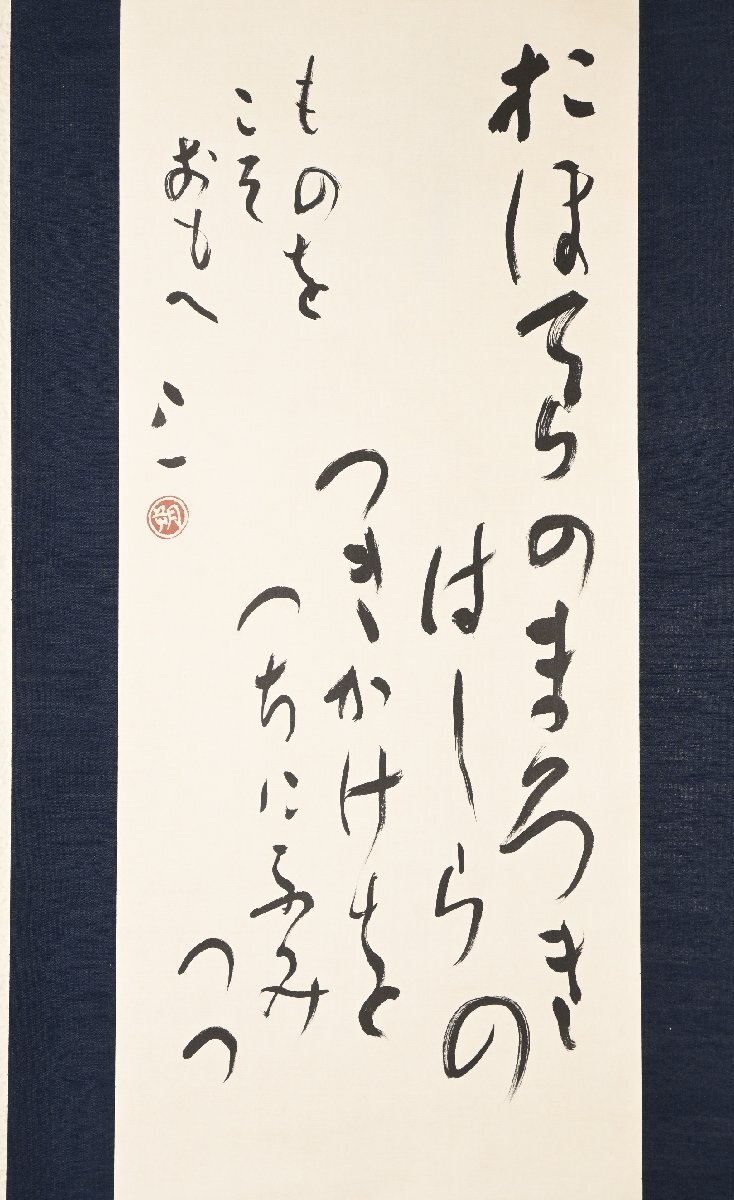 おほてらのまろき
はしらの
つきかけを
つちにふみ
つつ
ものを
こそ
おもへ
八一